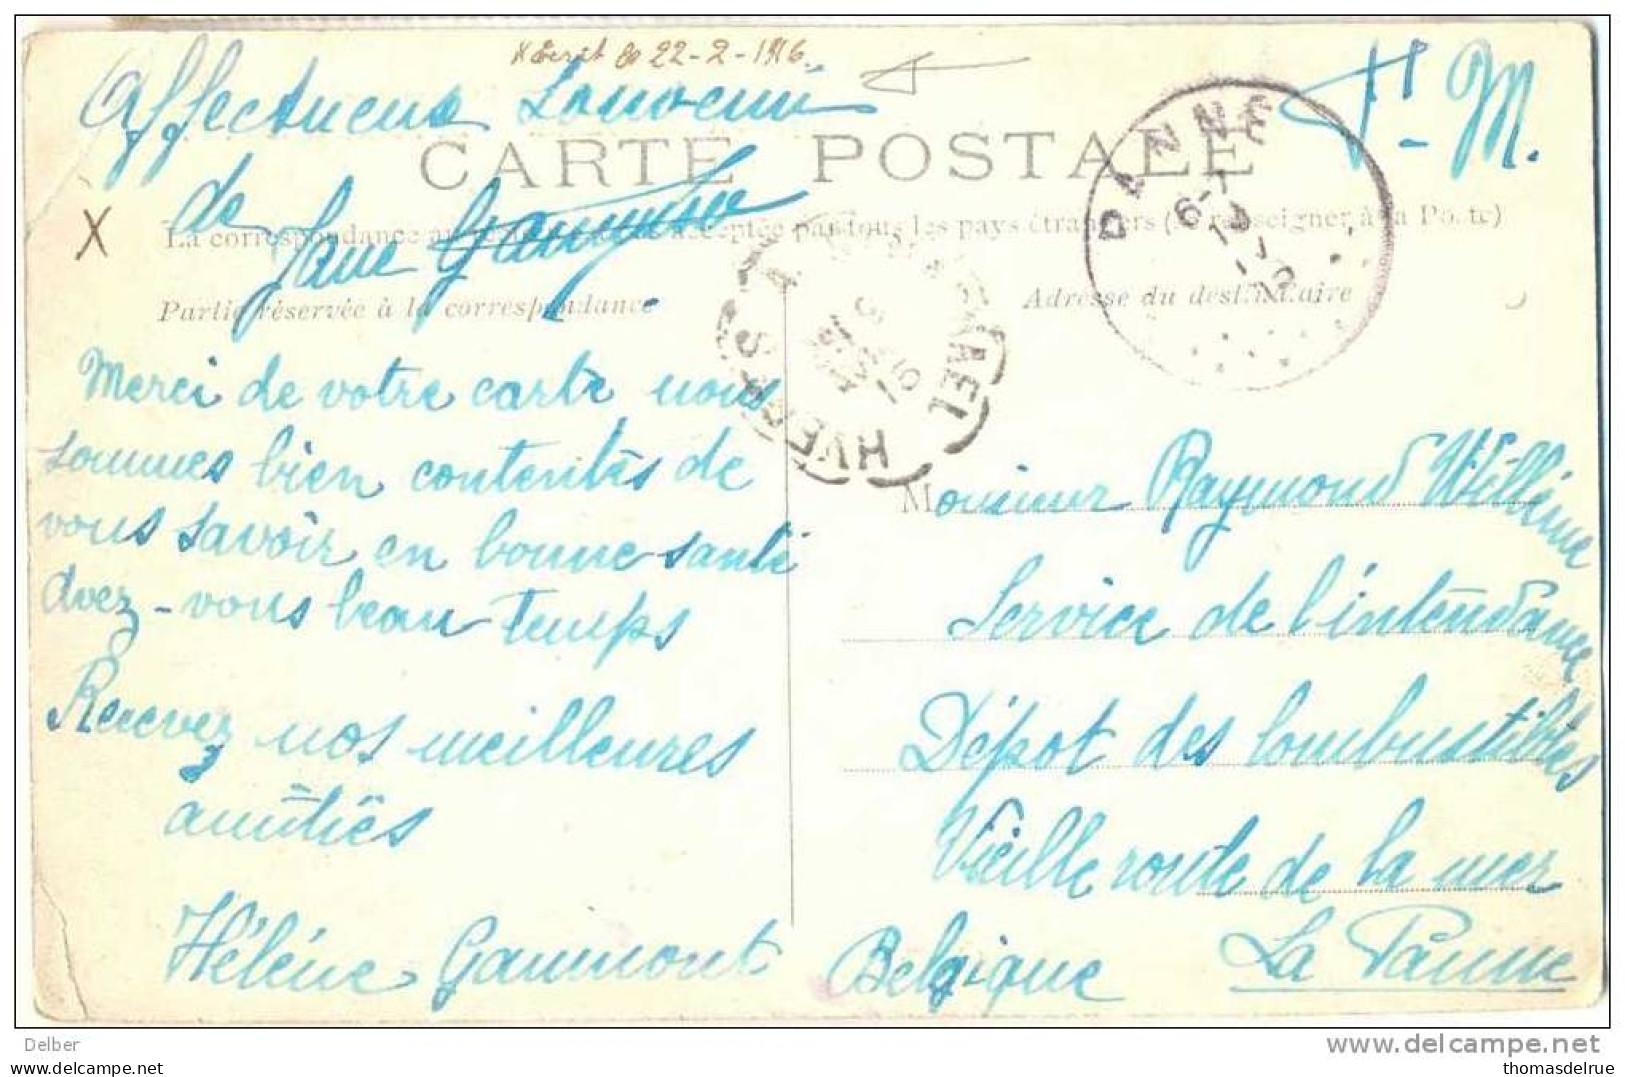 Ecrit le 22-2-1916.
Affectueux Souvenir
de Jane
F. M.
CARTE POSTALE
La correspondance au acceptée par tous les pays étrangers (Se renseigner à la Poste)
Partie réservée à la correspondance
Adresse du destinataire
PANNE
Merci de votre carte nous
sommes bien contentes de
vous savoir en bonne santé
Avez-vous beau temps
Recevez nos meilleures
amitiés
Hélène Gaumont
Monsieur Raymond
Service de l'intendance
Dépôt des Combustibles
Vieille route de la mer
La Panne
Belgique
X
Delber
www.delcampe.net
thomasdelrue